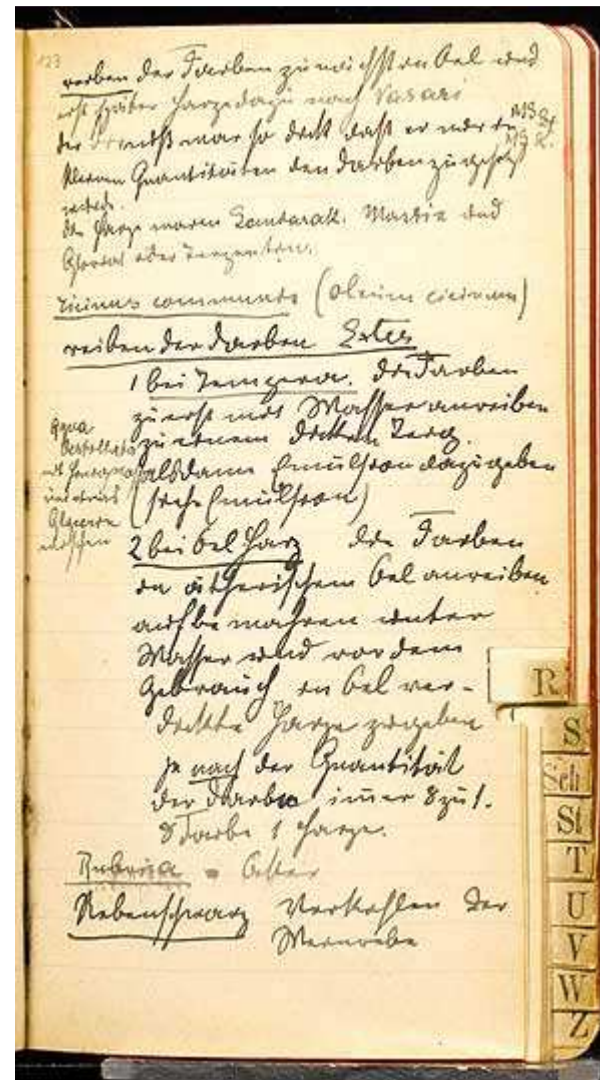 123
reiben der Farben zunächst in Oel und
erst später Harze dazu nach Vasari
der Firniß war so dick daß er nur in
kleinen Quantitäten den Farben zugesetzt
wurde.
die Harze waren Sandarak. Mastix und
oder Terpentin.
Ricinus communis (oleum cicinum)
reiben der Farben
1 bei Tempera. die Farben
zuerst mit Wasser anreiben
zu einem dicken Teig.
alsdann Emulsion dazugeben
(siehe Emulsion)
Aqua
Destillata
und etwas
Glycerin
mischen
2 bei Oel Harz die Farben
in ätherischem Oel anreiben
aufbewahren unter
Wasser und vor dem
Gebrauch in Oel ver-
dickte Harze zugeben
je nach der Quantität
der Farbe immer 8 zu 1.
8 Farbe 1 Harze.
Rubrica =
Rebenschwarz Verkohlen der
Weinrebe
R
S
Sch
St
T
U
V
W
Z